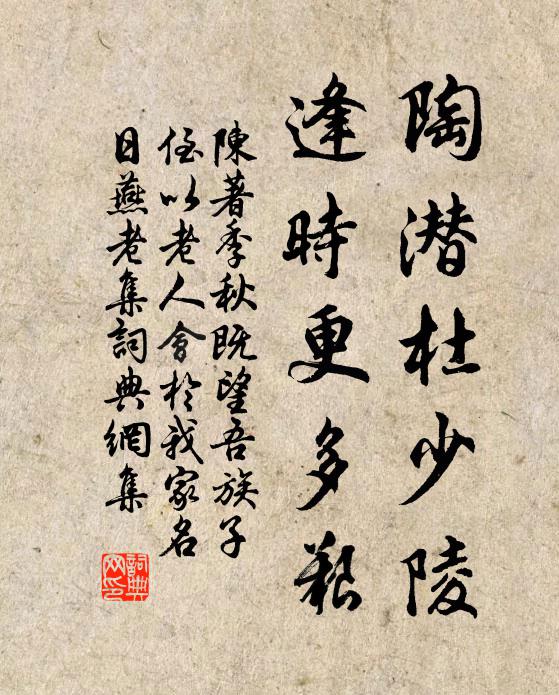 陶潜杜少陵
逢時更多艱
陳著季秋既望吾族子
侄以老人會於我家名
日燕老集詞典網集
詞典
网印